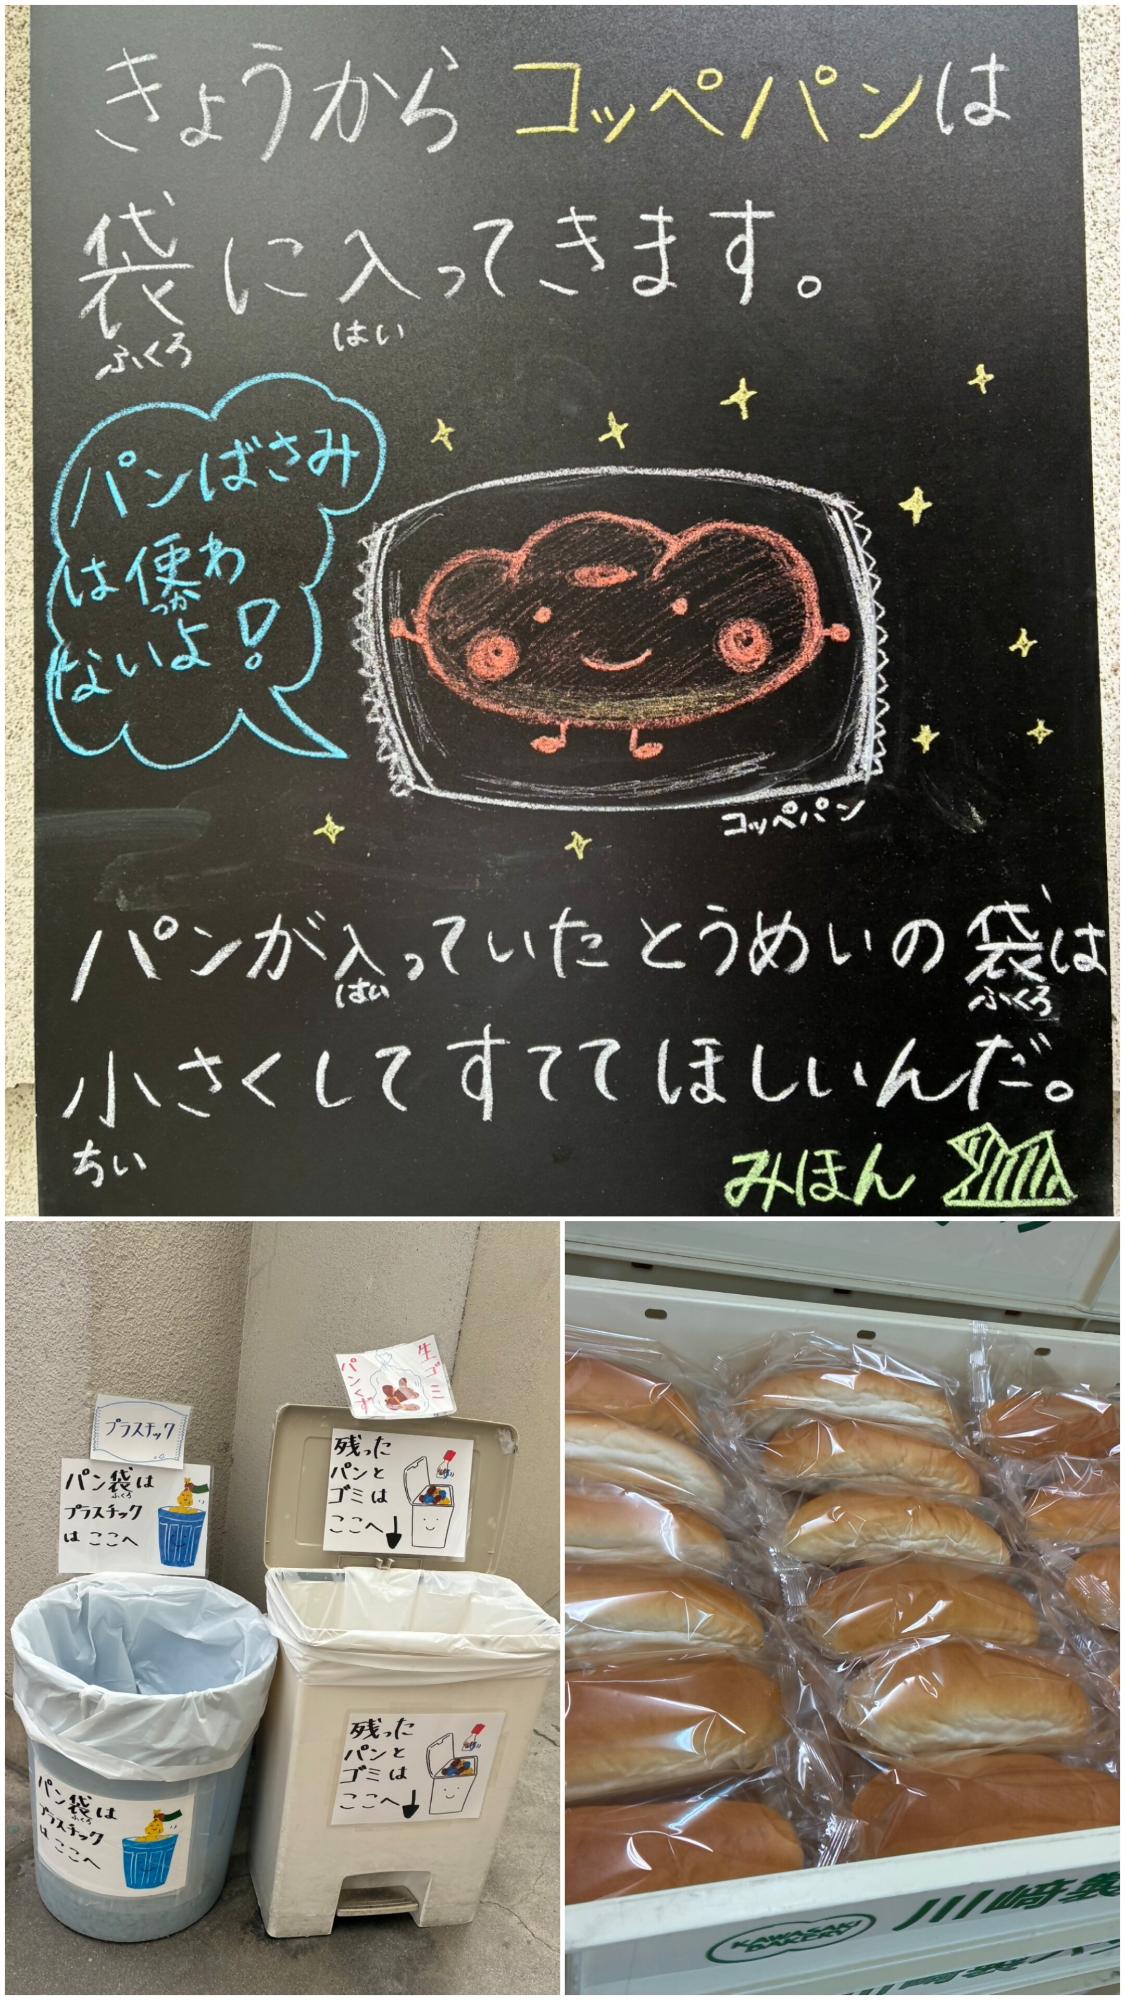 きょうから コッペパンは
袋に入ってきます。
ふくろ はい
パンばさみ
は使わ
つか
ないよ!
コッペパン
パンが入っていたとうめいの袋は
はい ふくろ
小さくしてすててほしいんだ。
ちい
みほん
プラスチック
パン袋は
ふくろ
プラスチック
は ここへ
パン袋は
ふくろ
プラスチック
は ここへ
生ゴミ
パンくず
残った
パンと
ゴミは
ここへ↓
残った
パンと
ゴミは
ここへ↓
KAWASAKI
BAKERY
川崎製
川崎製パン